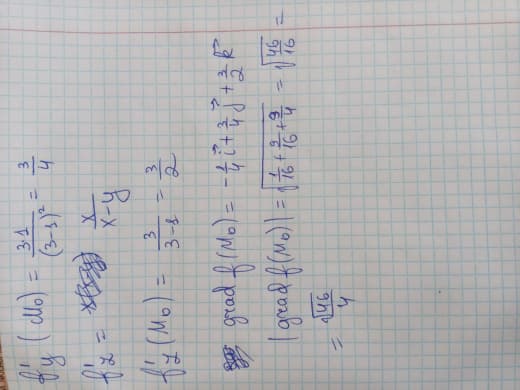 f'y (M₀) = 3·1/(3-1)² = 3/4
f'z = x/(x-y)
f'z (M₀) = 3/(3-1) = 3/2
grad f(M₀) = -1/4 i⃗ + 3/4 j⃗ + 3/2 k⃗
|grad f(M₀)| = √(1/16 + 9/16 + 9/4) = √(46/16) =
= √46/4